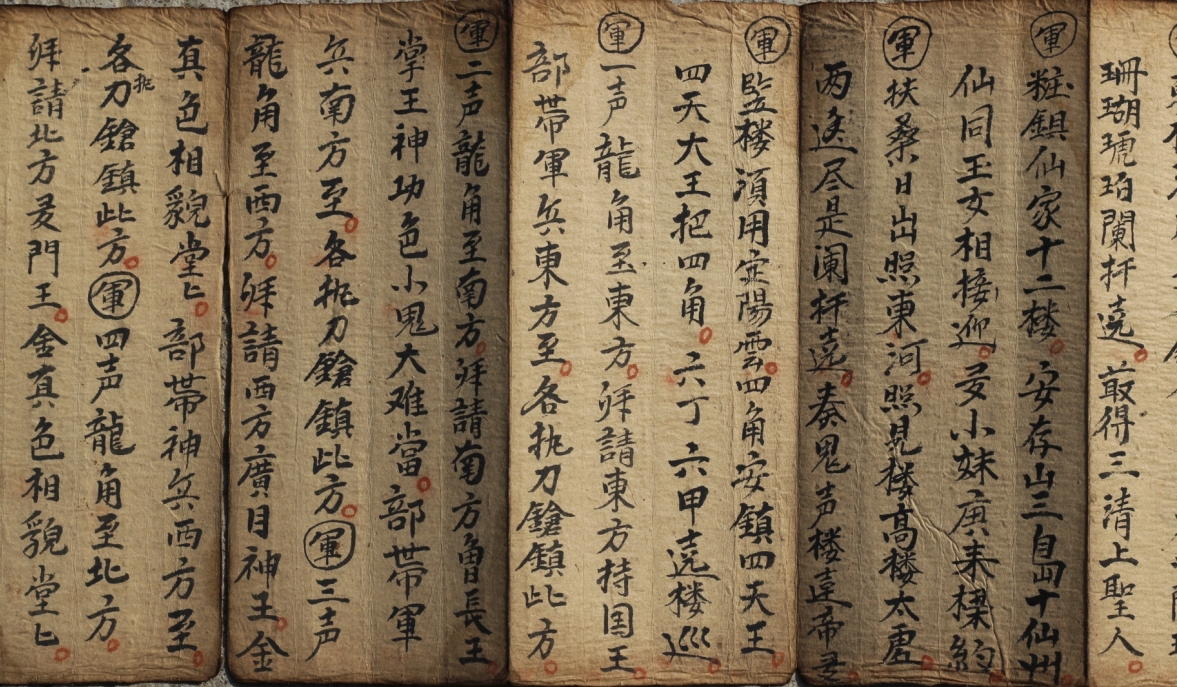 珊瑚琥珀闌杆遶敢得三清上聖人
軍粧鎖仙家十二楼安存山三自出十仙州
仙同玉女相接迎安小妹唐来樑約
軍扶桑日出照東河照見楼高楼太虚
两边尽是闌杆遶奏鬼声楼達帝
軍監楼須用定陽雲四角安鎮四天王
四天大王把四角六丁六甲遶楼巡
軍一声龍角至東方拜請東方持国王
部带軍兵東方至各执刀鎗鎮此方
軍二声龍角至南方拜請南方曾長王
掌王神功色小鬼大难當部带軍
兵南方至各执刀鎗鎮此方軍三声
龍角至西方拜請西方廣目神王金
真色相貌堂匕部带神兵西方至
各执刀鎗鎮此方軍四声龍角至北方
拜請北方門王金真色相貌堂匕